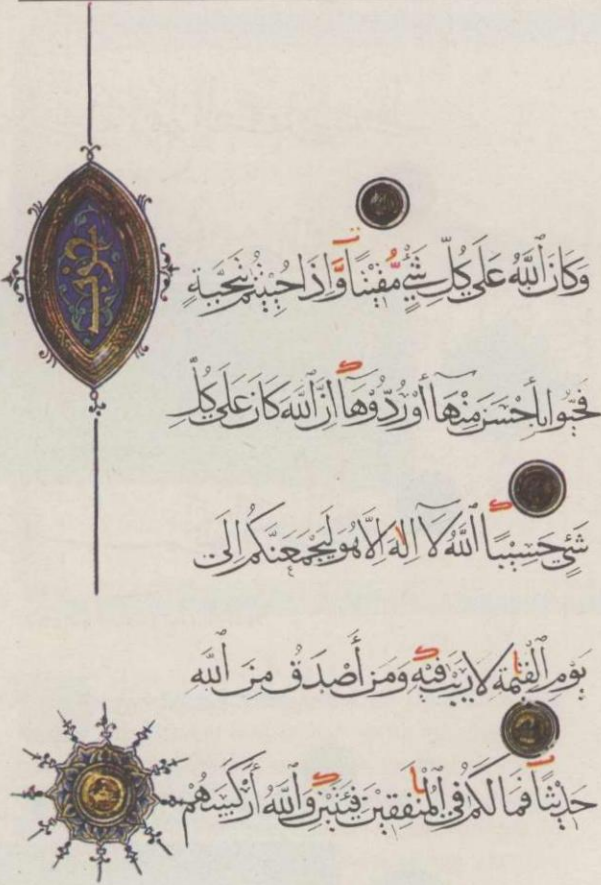 وَكَانَ ٱللَّهُ عَلَى كُلِّ شَيْءٍ مُّقِيتًا وَإِذَا حُيِّيتُم بِتَحِيَّةٍ
حزب
فَحَيُّوا بِأَحْسَنَ مِنْهَا أَوْ رُدُّوهَا إِنَّ ٱللَّهَ كَانَ عَلَى كُلِّ
شَيْءٍ حَسِيبًا ٱللَّهُ لَا إِلَٰهَ إِلَّا هُوَ لَيَجْمَعَنَّكُمْ إِلَى
يَوْمِ ٱلْقِيَٰمَةِ لَا رَيْبَ فِيهِ وَمَنْ أَصْدَقُ مِنَ ٱللَّهِ
حَدِيثًا فَمَا لَكُمْ فِي ٱلْمُنَٰفِقِينَ فِئَتَيْنِ وَٱللَّهُ أَرْكَسَهُمْ